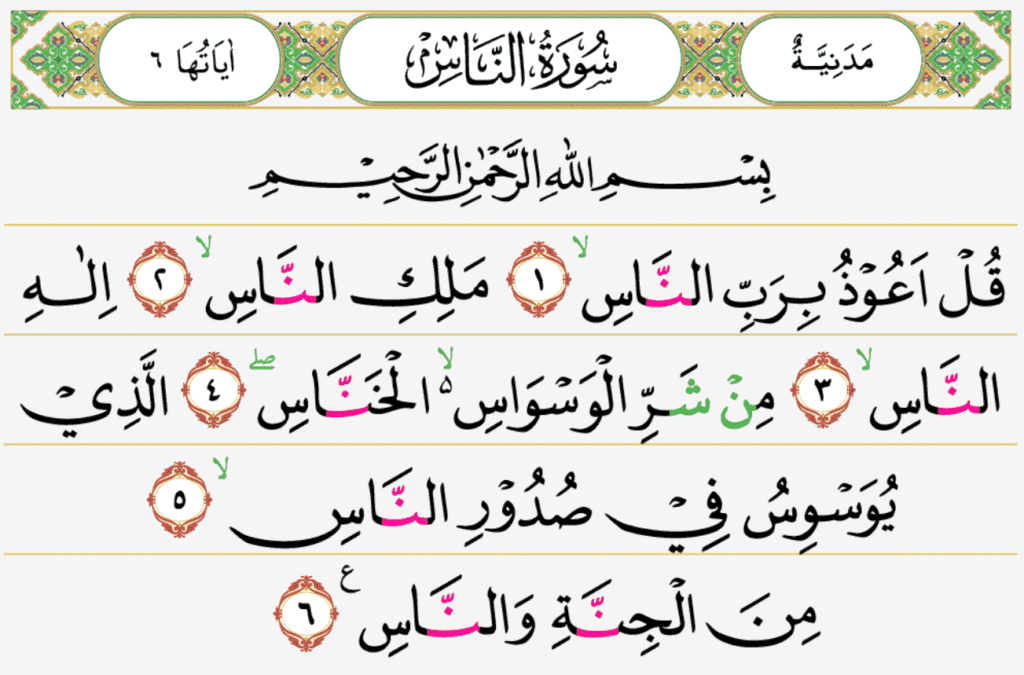 مَدَنِيَّةٌ سُوْرَةُ النَّاسِ اٰيَاتُهَا ٦
بِسْمِ اللّٰهِ الرَّحْمٰنِ الرَّحِيْمِ
قُلْ اَعُوْذُ بِرَبِّ النَّاسِۙ ١ مَلِكِ النَّاسِۙ ٢ اِلٰهِ
النَّاسِۙ ٣ مِنْ شَرِّ الْوَسْوَاسِ ەۙ الْخَنَّاسِۖ ٤ الَّذِيْ
يُوَسْوِسُ فِيْ صُدُوْرِ النَّاسِۙ ٥
مِنَ الْجِنَّةِ وَالنَّاسِ ࣖ ٦